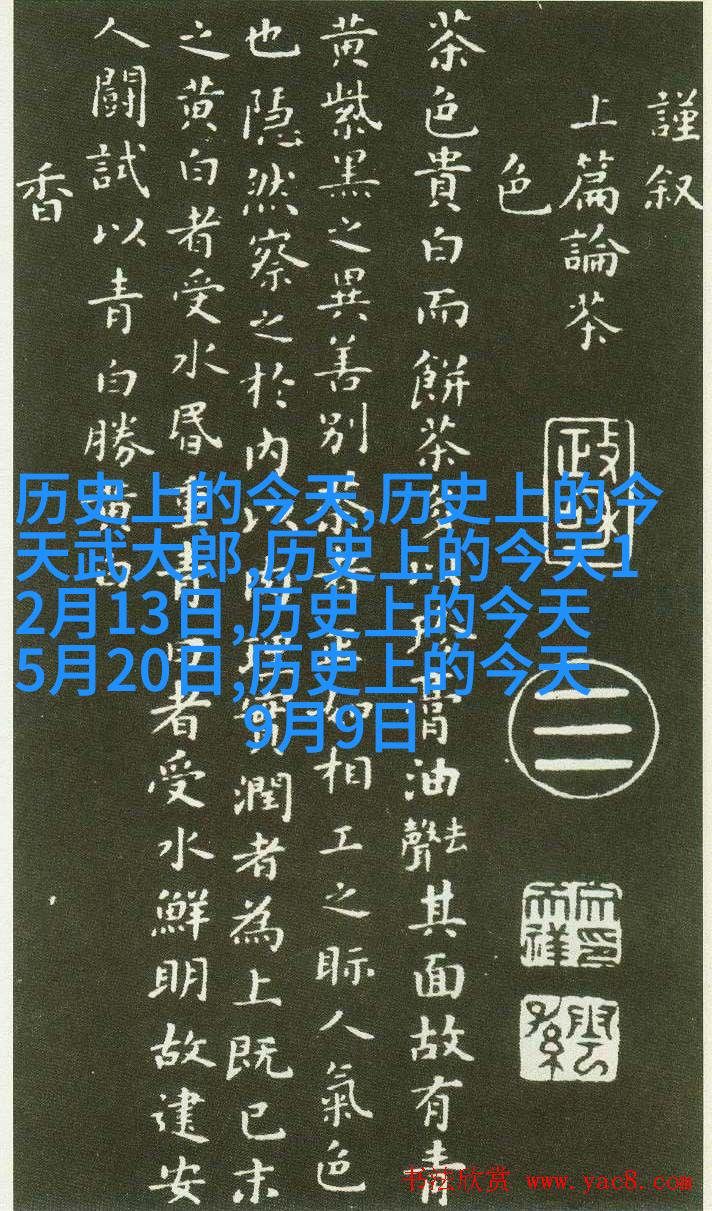 謹叙
上篇論茶
色
茶色貴白而餅茶多以珍膏油去聲其面故有青
黄紫黑之異善别茶者正如相工之眎人氣色
也隐然察之於内以肉理實潤者為上既已末
之黄白者受水昬重青白者受水鮮明故建安
人鬪試以青白勝黄白
香
政和
历史上的今天,历史上的今
天武大郎,历史上的今天1
2月13日,历史上的今天
5月20日,历史上的今天
9月9日
书法欣赏 www.yac8.com